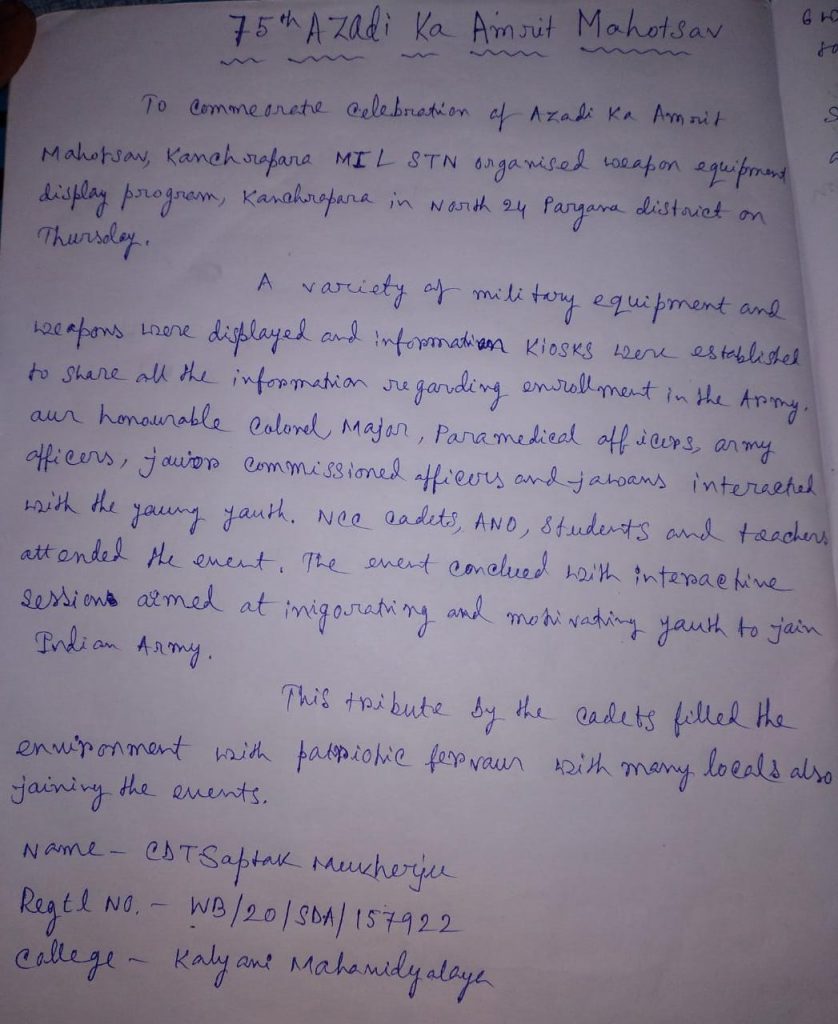 75th Azadi Ka Amrit Mahotsav
To Commeorate Celebration of Azadi Ka Amrit
Mahotsav, Kanchrapara MIL STN organised weapon equipment
display program, Kanchrapara in North 24 Pargana district on
Thursday.
A variety of military equipment and
weapons were displayed and information Kiosks were established
to share all the information regarding enrollment in the Army.
our honourable Colonel, Major, Paramedical officers, army
officers, junior commissioned officers and jawans interacted
with the young youth. NCC Cadets, ANO, Students and teachers
attended the event. The event conclued with interactive
sessions aimed at inigorating and motivating youth to join
Indian Army.
This tribute by the cadets filled the
environment with patriotic fervour with many locals also
joining the events.
Name - CDT Saptak Mukherjee
Regtl No. - WB/20/SDA/157922
College - Kalyani Mahavidyalaya